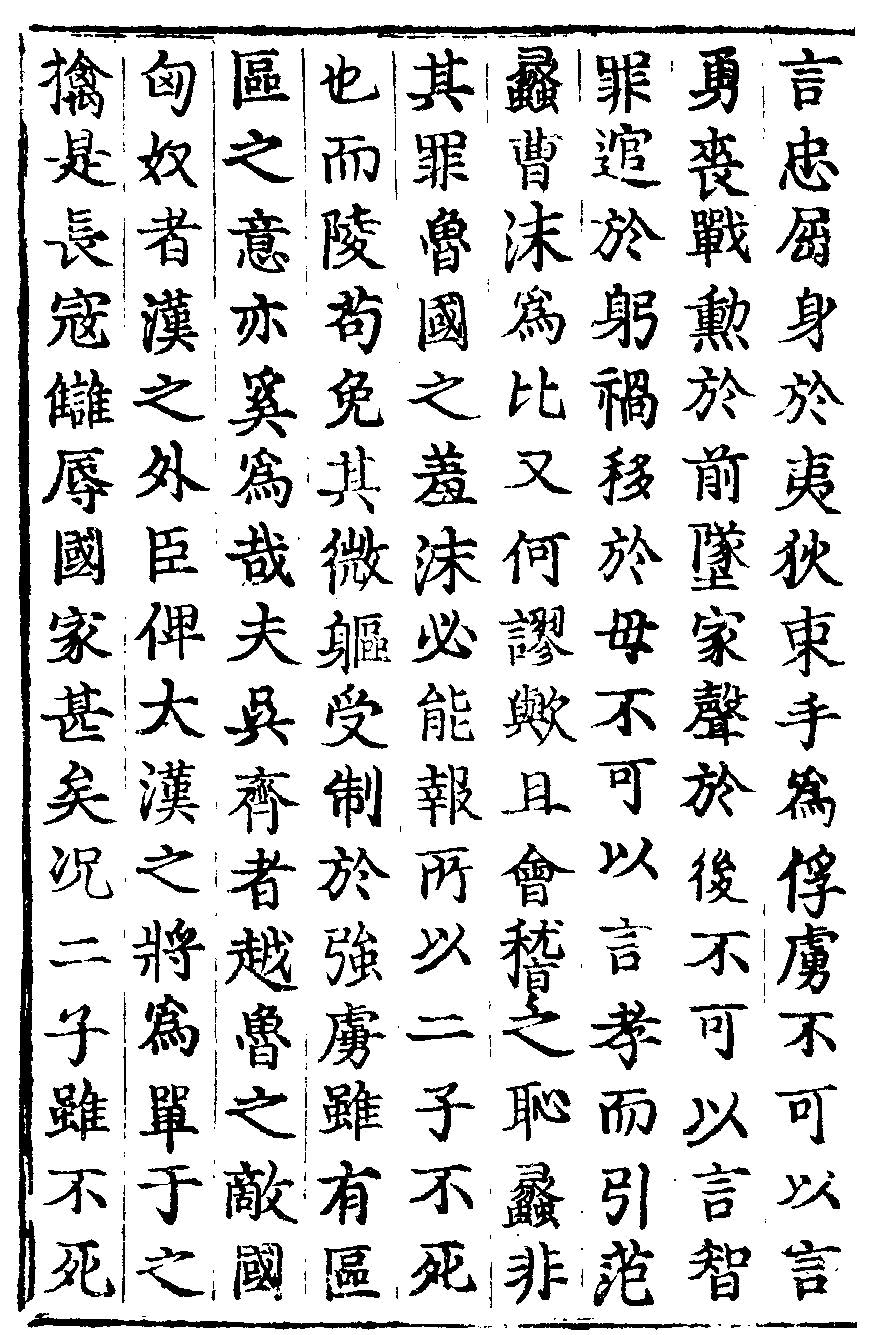 言忠屈身於夷狄束手為俘虜不可以言
勇喪戰勲於前墜家聲於後不可以言智
罪逭於躬禍移於母不可以言孝而引范
蠡曹沫為比又何謬歟且會稽之恥蠡非
其罪魯國之羞沫必能報所以二子不死
也而陵苟免其微軀受制於強虜雖有區
區之意亦奚為哉夫吳齊者越魯之敵國
匈奴者漢之外臣俾大漢之將為單于之
擒是長寇讎辱國家甚矣况二子雖不死